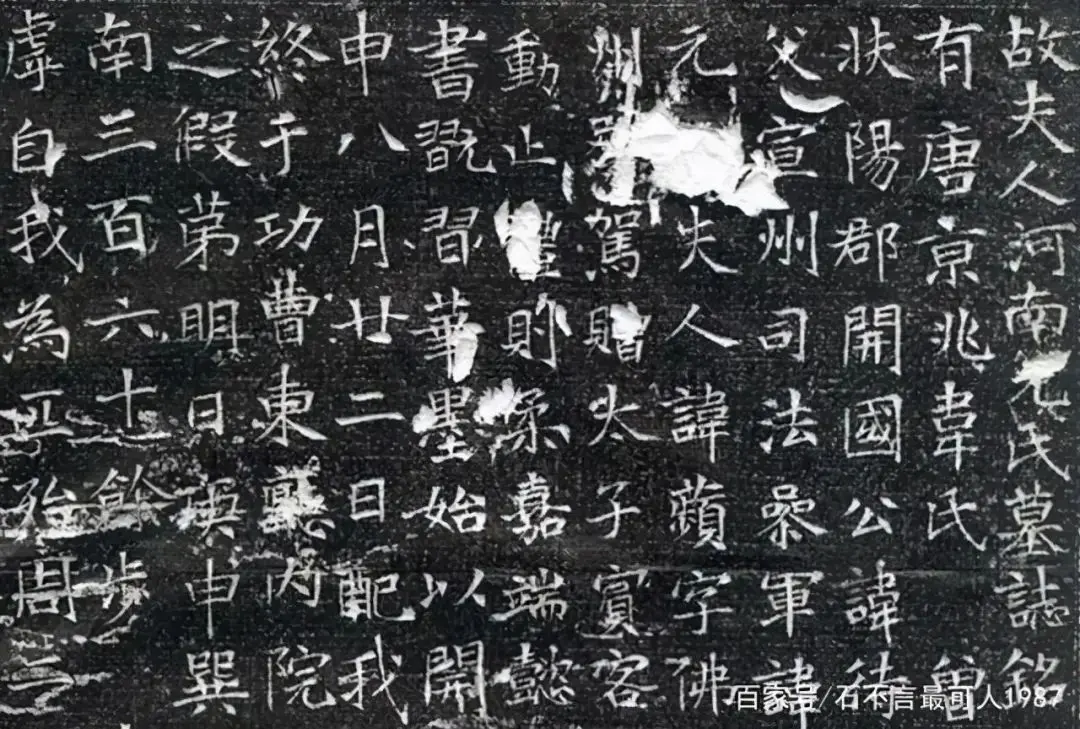 故夫人河南元氏墓誌銘
有唐京兆韋氏 曾
扶陽郡開國公諱待
父宣州司法參軍諱
元夫人諱蘋字佛
州別駕贈太子賓客
動止禮則柔嘉端懿
書翫習華墨始以開
申八月廿二日配我
終于功曹東廳内院
之假第明日庚申巽
南三百六十餘步
虛自我為匹殆周二
百家号/石不言最可人1987